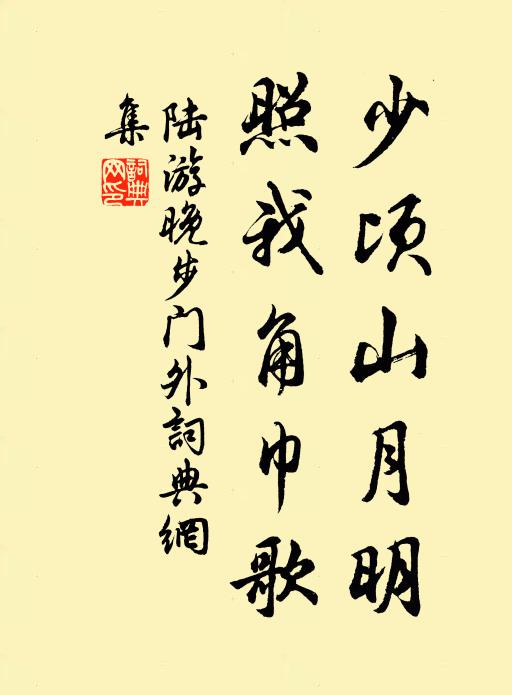 少顷山月明
照我角巾歌
陆游晚步门外詞典網
集
詞典網印